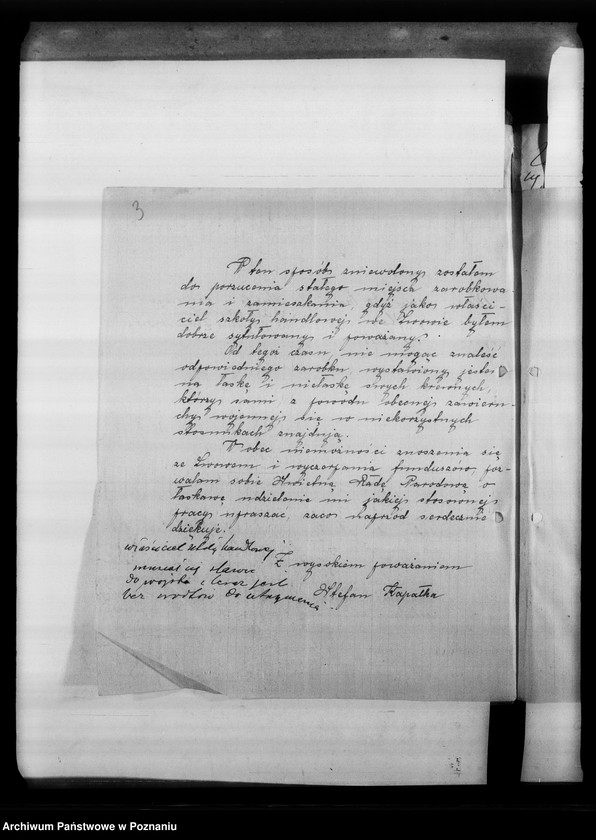 3
W ten sposób zniewolony zostałem
do porzucenia stałego miejsca zarobkowa-
nia i zamieszkania, gdyż jako właści-
ciel szkoły handlowej we Lwowie byłem
dobrze sytuowany i poważany.
Od tegoż czasu, nie mogąc znaleść
odpowiedniego zarobku, wystawiony jestem
na łaskę i niełaskę swych krewnych,
którzy sami z powodu obecnej zawieru-
chy wojennej się w niekorzystnych
stosunkach znajdują.
Wobec niemożności znoszenia się
ze Lwowem i wyczerpania funduszów, po-
walam sobie Świetną Radę Narodową o
łaskawe udzielenie mi jakiejś stosownej
pracy upraszać, zaco naprzód serdecznie
dziękuję.
właściciel szkoły handlowej
musiał się stawić
do wojska i teraz jest
bez środków do utrzymania
Z wysokiem poważaniem
Stefan Kapałka
Archiwum Państwowe w Poznaniu